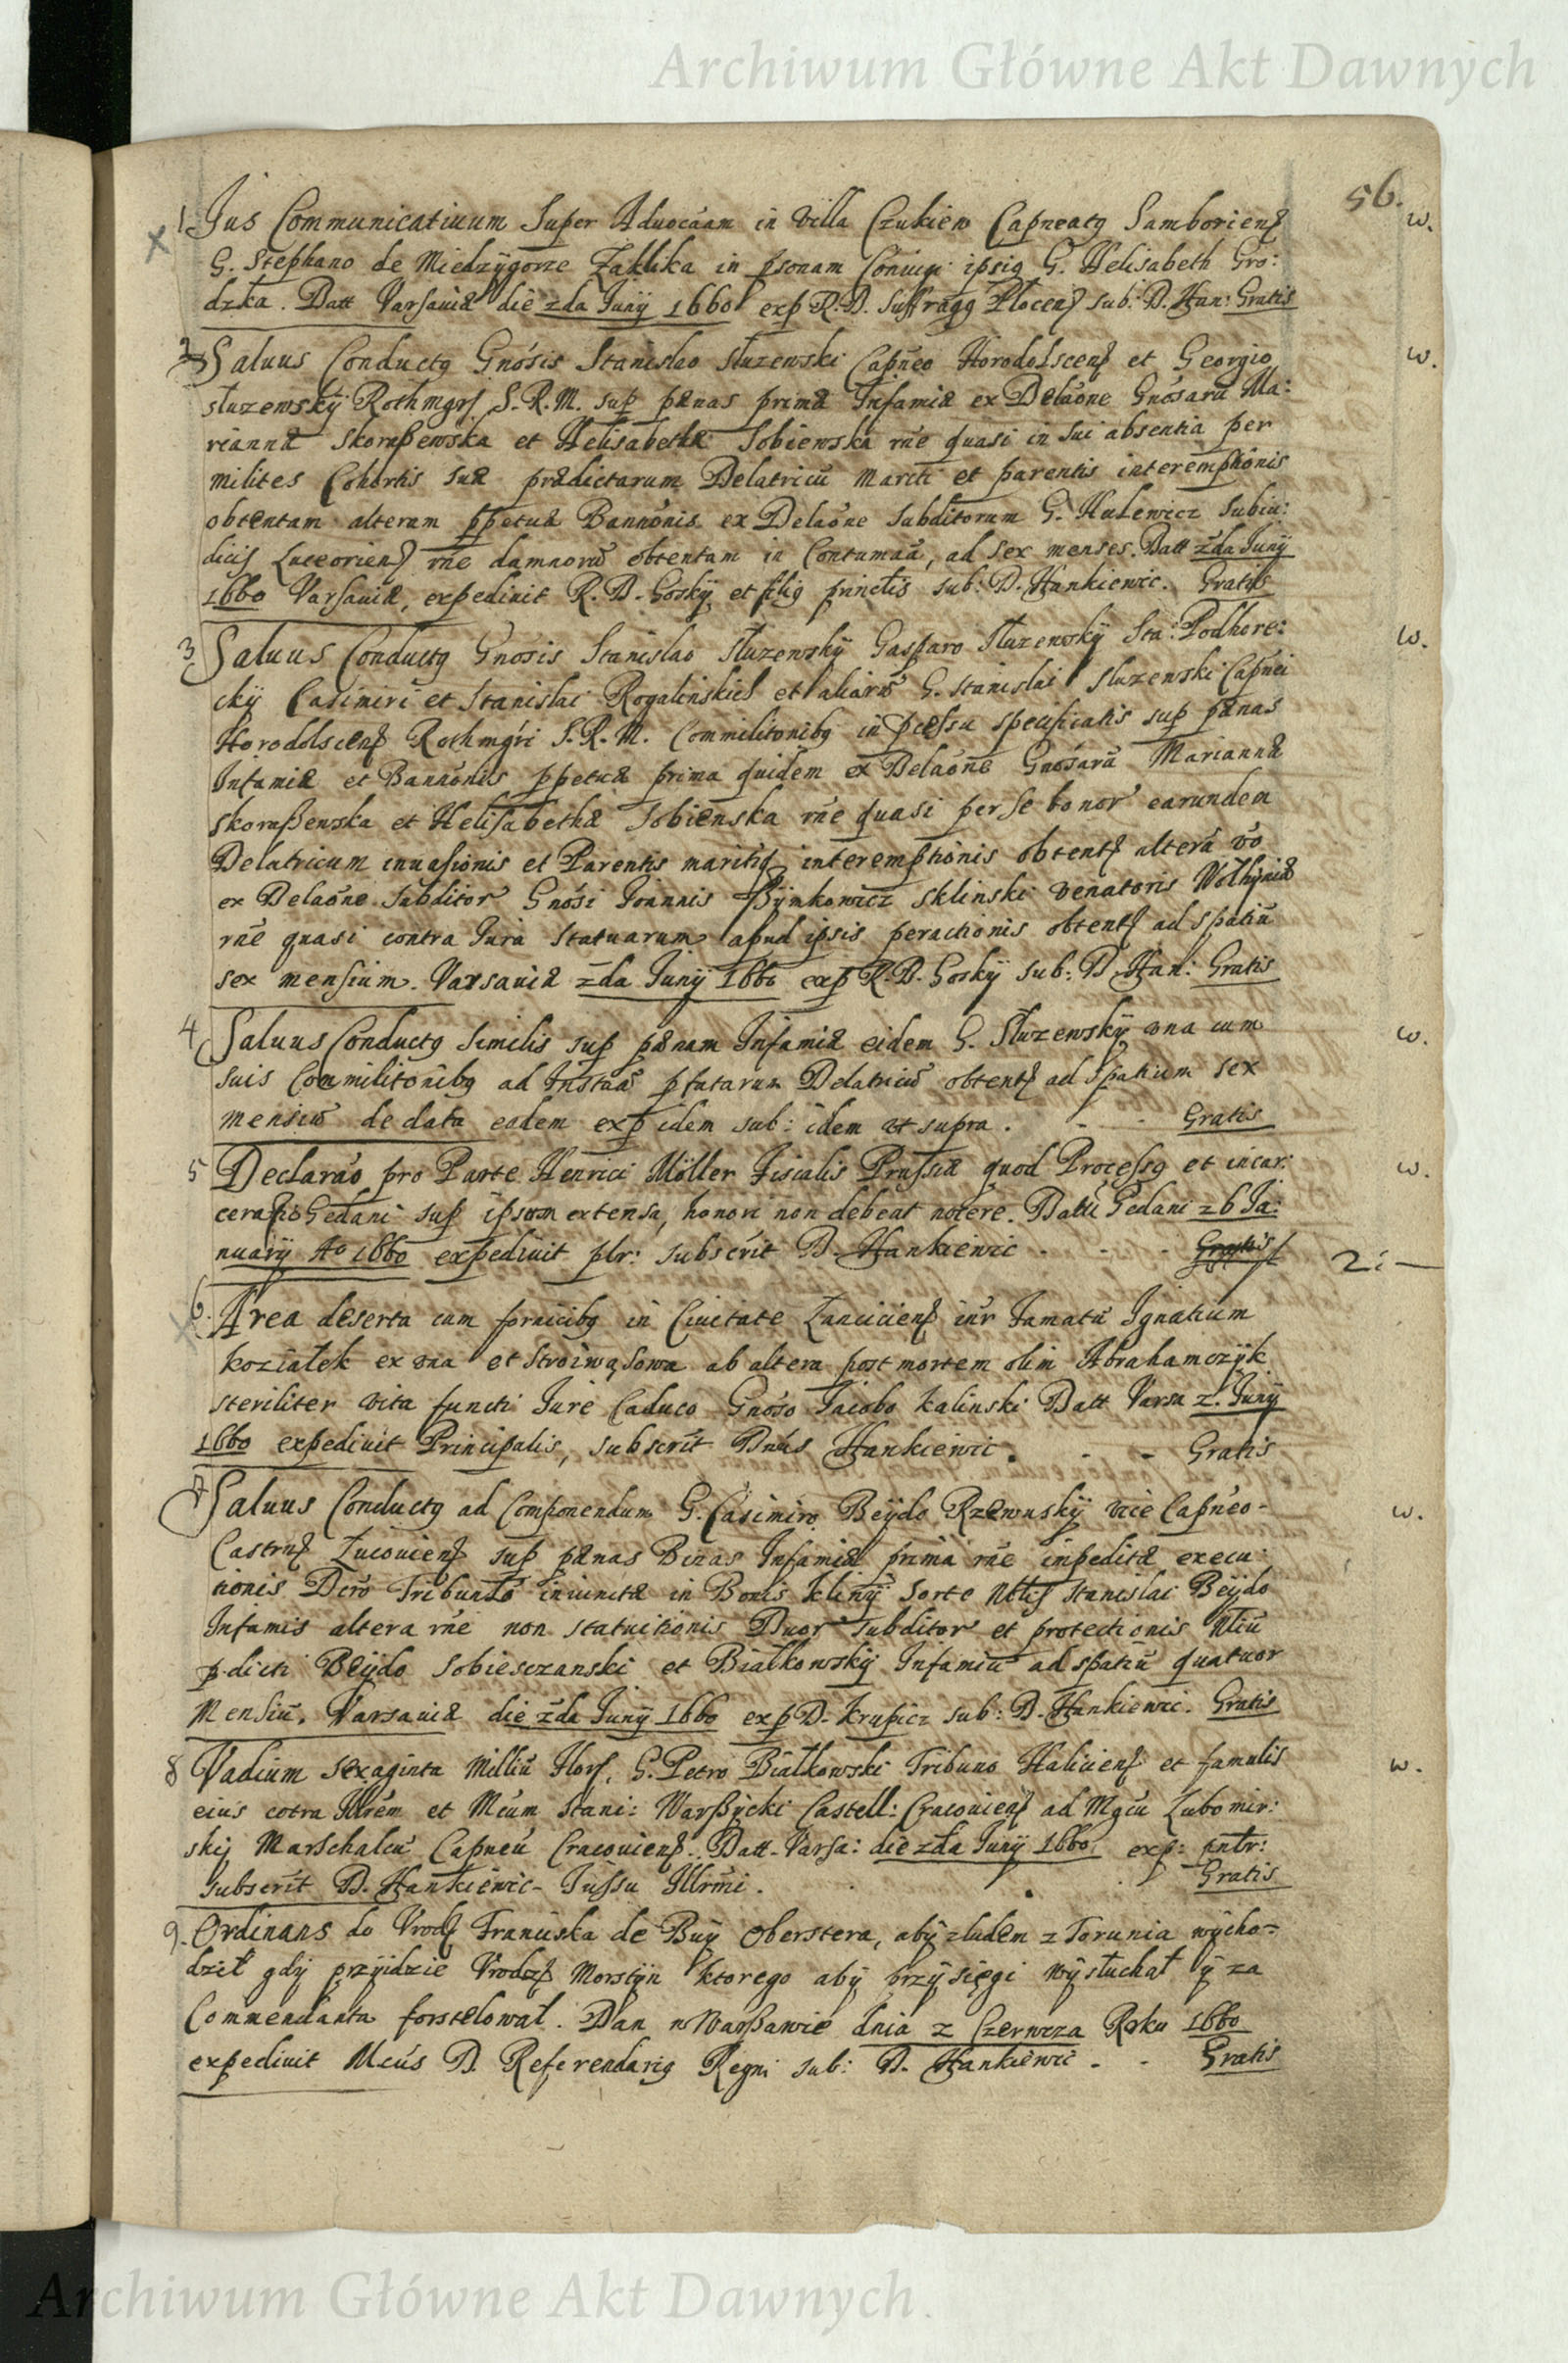 Archiwum Główne Akt Dawnych
56.
1 Jus Communicatiuum Super Aduocaam in Villa Czukiew Capneatq Samboriens w.
G. Stephano de Miedzygorze Zaklika in psonam Coniugi ipsiq G. Helisabeth Gro:
dzka. Datt Varsauiæ die 2da Junÿ 1660 exp R. D. Suffragq Plocens sub: D. Han: Gratis
2 Saluus Conductq Gnosis Stanislao Służewski Capneo Horodolscens et Georgio w.
służewskÿ Rothmgrs S. R. M. sup pænas primæ Infamiæ ex Delaone Gnosaru Ma:
riannæ Skoraszewska et Helisabethæ Sobiewska rne quasi in sui absentia per
milites Cohortis suæ prædictarum Delatricu mariti et parentis interemptionis
obtentam alteram ppetuæ Bannonis ex Delaone Subditorum G. Hulewicz Subiu:
dicis Luceoriens rne damnoru obtentam in Contumaa, ad sex menses. Datt 2da Junÿ
1660 Varsauiæ, expediuit R. D. Goskÿ et sliq princtis sub: D. Hankiewic. Gratis
3 Saluus Conductq Gnosis Stanislao Służewskÿ Gasparo Służewskÿ Sta: Podhore: w.
ckÿ Casimiri et Stanislai Rogalinskich et aliorũ G. Stanislai Służewski Capnei
Horodolscens Rothmgri S. R. M. Commilitonibq in pcessu specificatis sup pænas
Infamiæ et Bannonis ppetuæ prima quidem ex Delaone Gnosaru Mariannæ
Skoraszewska et Helisabethæ Sobiewska rne quasi per se bonor earunden
Delatricum inuasionis et Parentis maritiq interemptionis obtents altera vo
ex Delaone Subditor Gnosi Joannis Bÿnkowicz Sklinski Venatoris Wolhÿniæ
rne quasi contra Jura Statuarum apud ipsis peractionis obtents ad spatiu
sex mensium. Varsauiæ 2da Junÿ 1660 exp R. D. Goskÿ sub: D. Han: Gratis
4 Saluus Conductq Similis sup pænam Infamiæ eidem G. Służewskÿ una cum w.
suis Commilitonibq ad Instaa pfatarum Delatricu obtents ad spatium sex
mensiu de data eadem exp idem sub: idem ut supra. - - Gratis
5 Declarao pro Parte Henrici Möller Fiscalis Prussiæ quod Processq et incar: w.
ceratio Gedani sup ipsum extensa, honori non debeat nocere. Datu Gedani 26 Ja:
nuarÿ Ao 1660 expediuit plr: subscrit D. Hankiewic - - - Gratis 2: —
6. Area deserta cum fornicibq in Ciuitate Lanciciens inr Famatu Ignatium
koziałek ex una et Stroiwąsowa ab altera post mortem olim Abrahamczÿk
steriliter vita functi Jure Caduco Gnoso Jacobo Kalinski Datt Varsa 2. Junÿ
1660 expediuit Principalis, subscrit Dnus Hankiewic. - - Gratis
7 Saluus Conductq ad Componendum G. Casimiro Beÿdo Rzewuskÿ vice Capneo- w.
Castrens Łucouiens sup pænas Binas Infamiæ prima rne impeditæ execu:
tionis Decro Tribunalo iniunctæ in Bonis Kelinÿ sorte Nblis Stanislai Beÿdo
Infamis altera rne non statuitionis Duor Subditor et protectionis Nbliu
p.dicti Beÿdo Sobiesczanski et Białkowskÿ Infamiu ad spatiu quatuor
Mensiu. Varsauiæ die 2da Junÿ 1660 exp D. Krupicz sub: D. Hankiewic. Gratis
8 Vadium sexaginta Milliu Flors. G. Petro Białkowski Tribuno Haliciens et famulis w.
eius cotra Illrem et Mcum Stani: Warszÿcki Castell: Cracouiens ad Mgcu Lubomir:
skij Marschalcu Capneu Cracouiens. Datt. Varsa: die 2da Junÿ 1660. exp: pntr:
subscrit D. Hankiewic- Jussu Illrmi. . . . Gratis
9. Ordinans do Vrodz Franciska de Buÿ Oberstera, abÿ z ludem z Torunia wÿcho=
dził gdÿ przÿidzie Vrodzs Morstÿn ktorego abÿ przÿsięgi wÿsłuchał ÿ za
Commendanta forstelował. Dan w Warszawie dnia 2 Czerwcza Roku 1660
expediuit Mcus D. Referendariq Regni sub: D. Hankiewic - - Gratis
Archiwum Główne Akt Dawnych